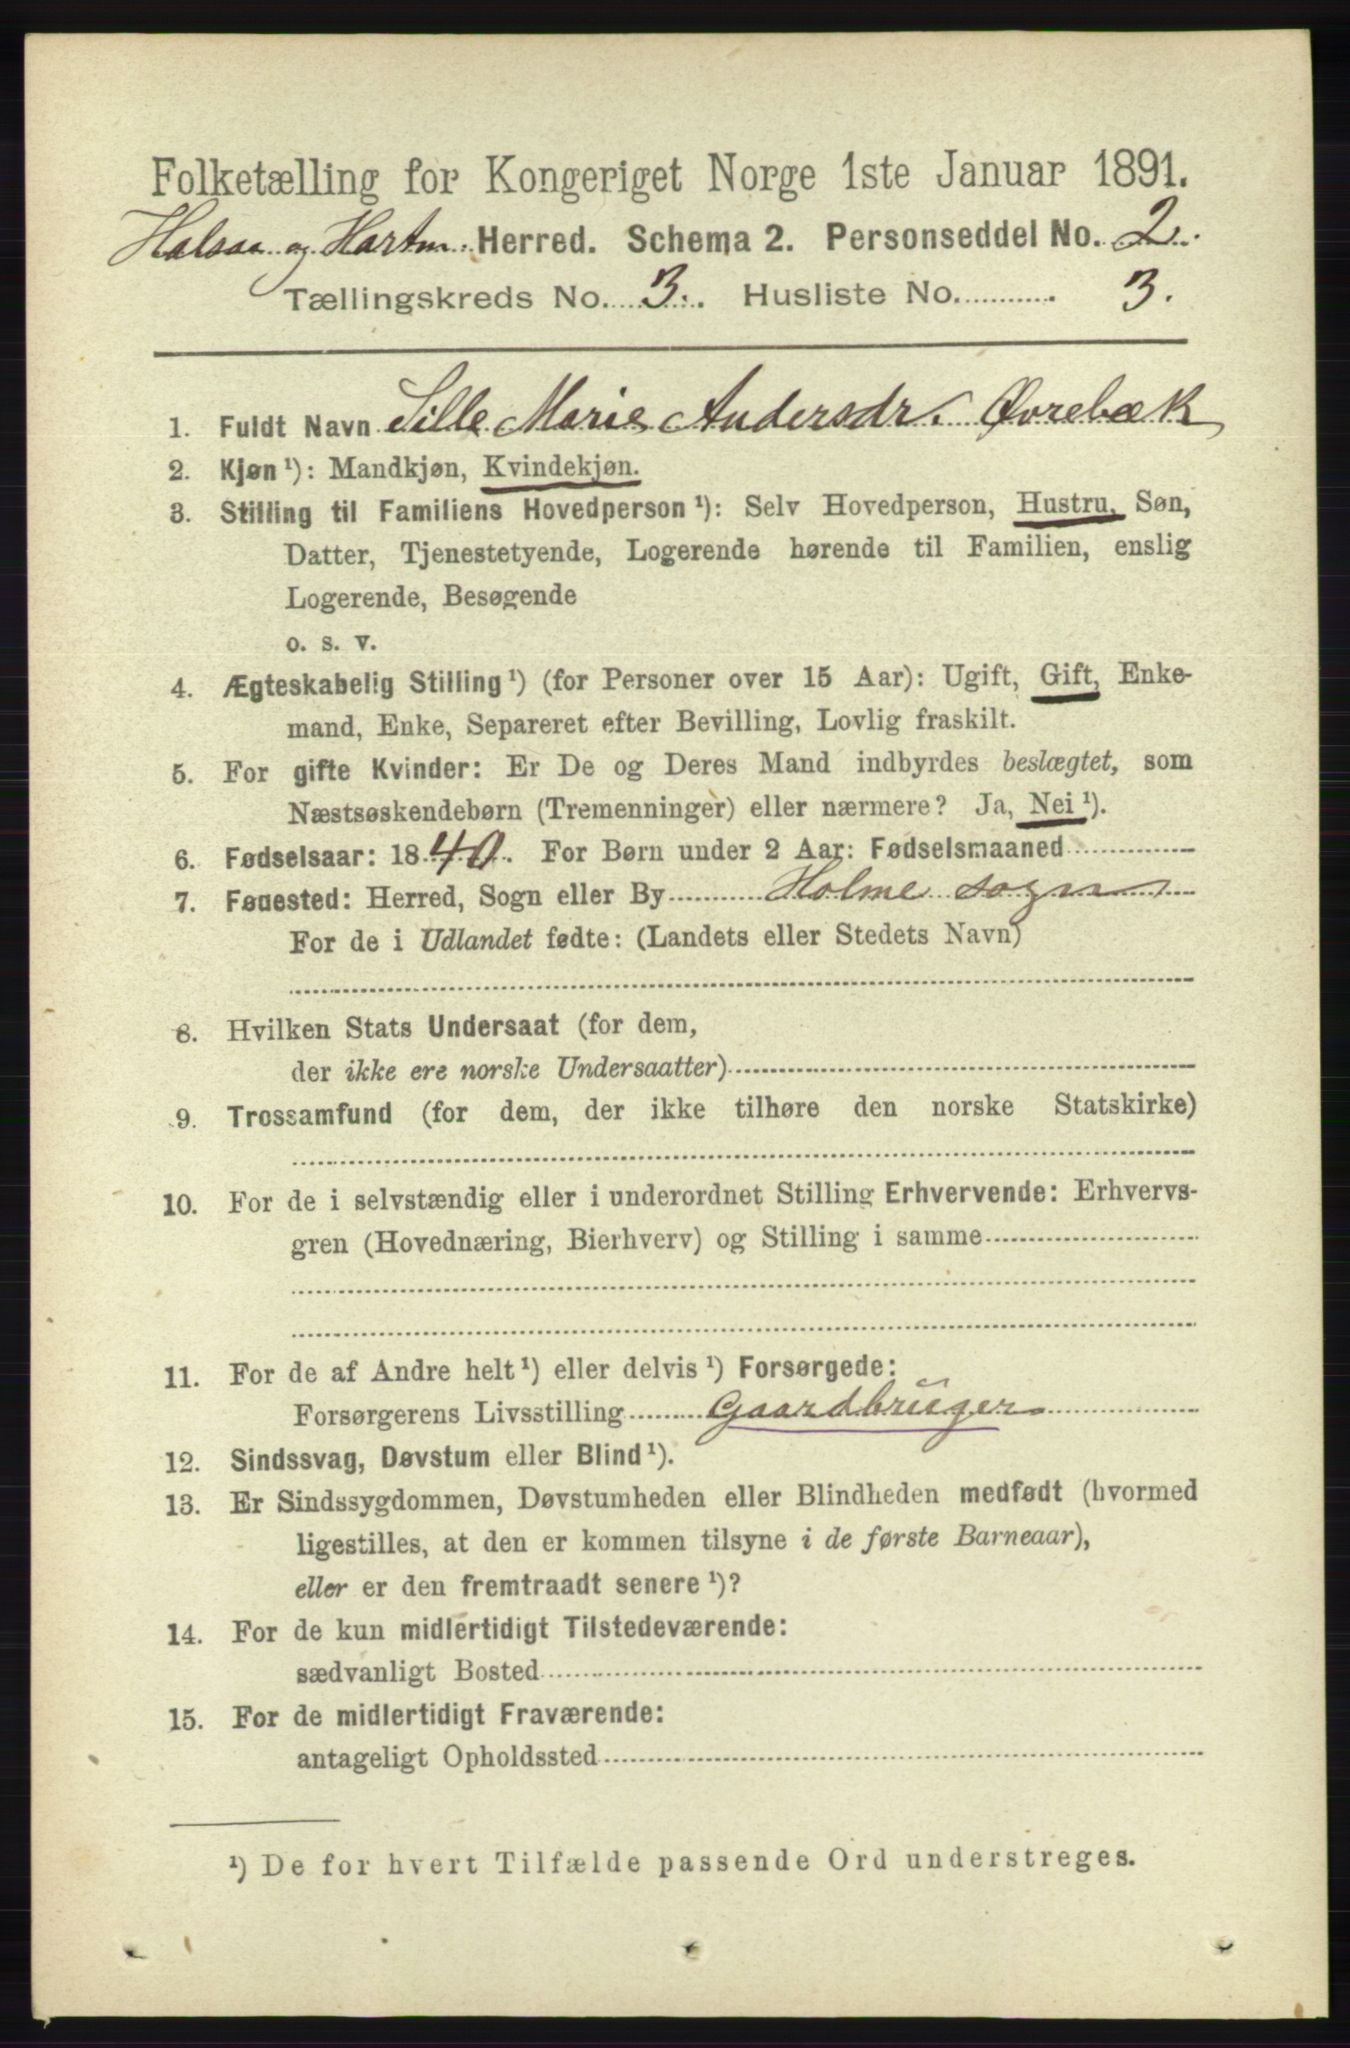 Folketælling for Kongeriget Norge 1ste Januar 1891.
Halsaa og Hartm. Herred. Schema 2. Personseddel No. 2.
Tællingskreds No. 3. Husliste No. 3.
1. Fuldt Navn Sille Marie Andersdr. Øvrebæk
2. Kjøn ¹): Mandkjøn, Kvindekjøn.
3. Stilling til Familiens Hovedperson ¹): Selv Hovedperson, Hustru, Søn,
Datter, Tjenestetyende, Logerende hørende til Familien, enslig
Logerende, Besøgende
o. s. v.
4. Ægteskabelig Stilling ¹) (for Personer over 15 Aar): Ugift, Gift, Enke-
mand, Enke, Separeret efter Bevilling, Lovlig fraskilt.
5. For gifte Kvinder: Er De og Deres Mand indbyrdes beslægtet, som
Næstsøskendebørn (Tremenninger) eller nærmere? Ja, Nei ¹).
6. Fødselsaar: 1840. For Børn under 2 Aar: Fødselsmaaned
7. Fødested: Herred, Sogn eller By Holme sogn
For de i Udlandet fødte: (Landets eller Stedets Navn)
8. Hvilken Stats Undersaat (for dem,
der ikke ere norske Undersaatter)
9. Trossamfund (for dem, der ikke tilhøre den norske Statskirke)
10. For de i selvstændig eller i underordnet Stilling Erhvervende: Erhvervs-
gren (Hovednæring, Bierhverv) og Stilling i samme
11. For de af Andre helt ¹) eller delvis ¹) Forsørgede:
Forsørgerens Livsstilling Gaardbrüger
12. Sindssvag, Døvstum eller Blind ¹).
13. Er Sindssygdommen, Døvstumheden eller Blindheden medfødt (hvormed
ligestilles, at den er kommen tilsyne i de første Barneaar),
eller er den fremtraadt senere ¹)?
14. For de kun midlertidigt Tilstedeværende:
sædvanligt Bosted
15. For de midlertidigt Fraværende:
antageligt Opholdssted
¹) De for hvert Tilfælde passende Ord understreges.